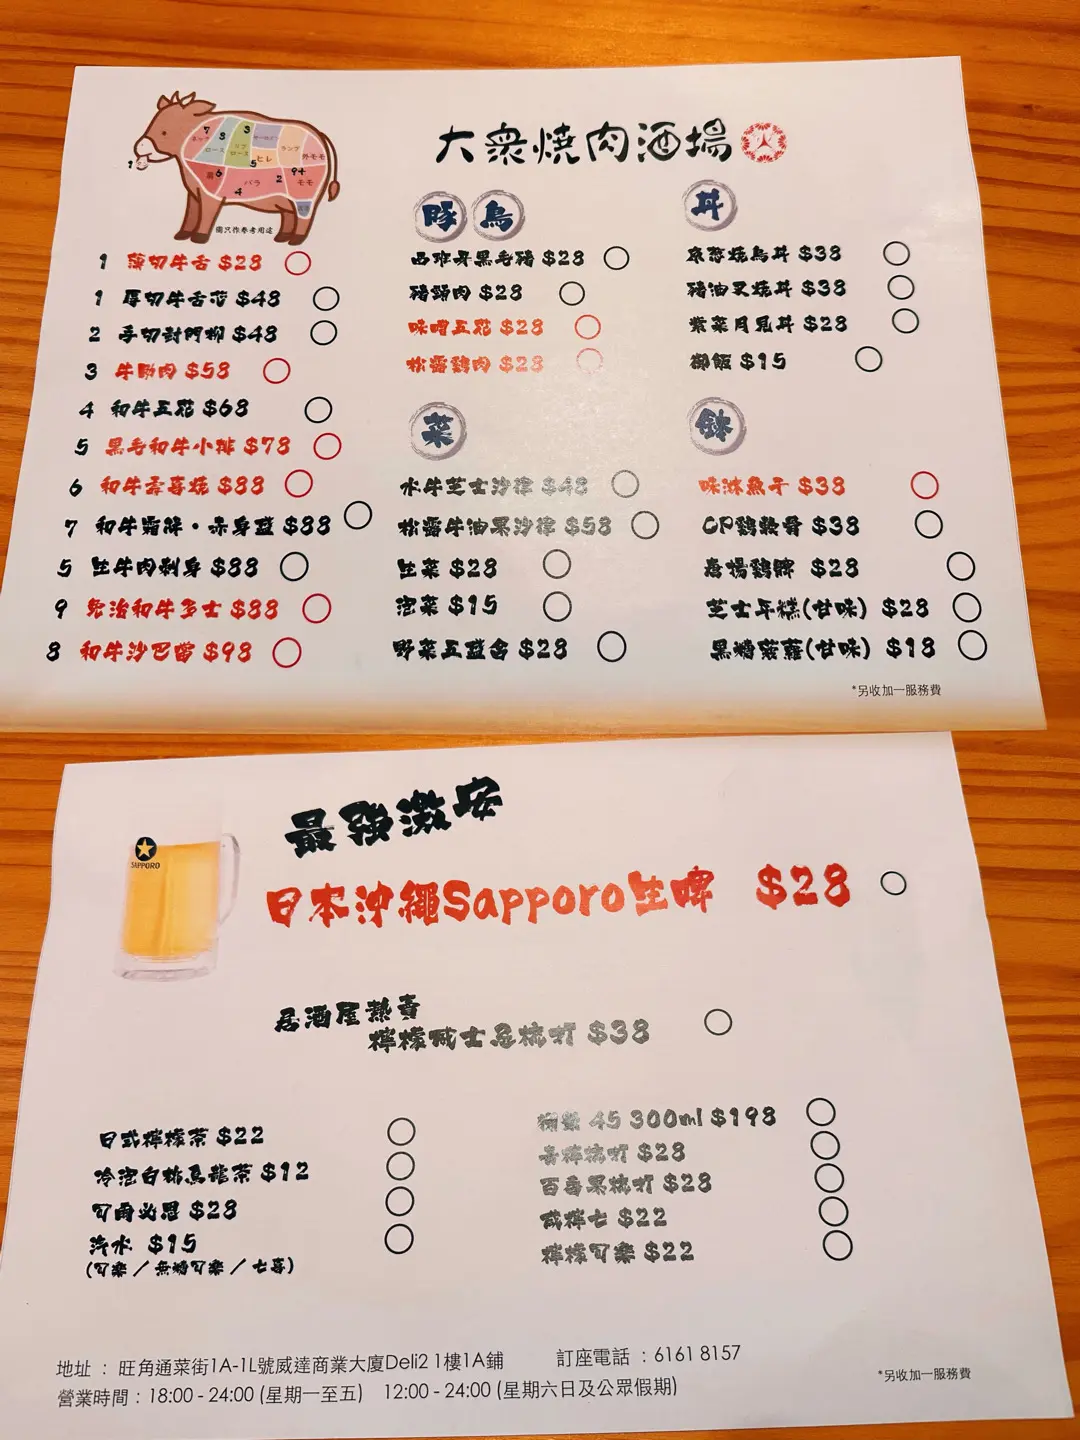 大衆焼肉酒場
7 8 3
ネック
ロース
リブロース
ヒレ
ランプ
外モモ
バラ
モモ
1 6 5 4 2 9+
圖只作參考用途
1 薄切牛舌 $28
1 厚切牛舌芯 $48
2 手切封門柳 $48
3 牛肋肉 $58
4 和牛五花 $68
5 黒毛和牛小排 $78
6 和牛壽喜燒 $88
7 和牛霜降・赤身盛 $88
5 生牛肉刺身 $88
9 免治和牛多士 $88
8 和牛沙巴當 $98
豚 鳥
西班牙黒毛豬 $28
豬頸肉 $28
味噌五花 $28
松露鷄肉 $28
菜
水牛芝士沙律 $48
松露牛油果沙律 $58
生菜 $28
泡菜 $15
野菜五盛合 $28
丼
京葱燒鳥丼 $38
豬油叉燒丼 $38
紫菜月見丼 $28
御飯 $15
味淋魚干 $38
CP鷄軟骨 $38
唐揚鷄髀 $28
芝士年糕(甘味) $28
黒糖菠蘿(甘味) $18
*另收加一服務費
最強激安
SAPPORO
日本沖繩Sapporo生啤 $28
居酒屋熱賣
檸檬威士忌梳打 $38
日式檸檬茶 $22
冷泡白桃烏龍茶 $12
可爾必思 $28
汽水 $15
(可樂／無糖可樂／七喜)
獺祭 45 300ml $198
青檸梳打 $28
百香果梳打 $28
咸檸七 $22
檸檬可樂 $22
地址 : 旺角通菜街1A-1L號威達商業大廈Deli2 1樓1A鋪 訂座電話 : 6161 8157
營業時間 : 18:00 - 24:00 (星期一至五) 12:00 - 24:00 (星期六日及公眾假期)
*另收加一服務費